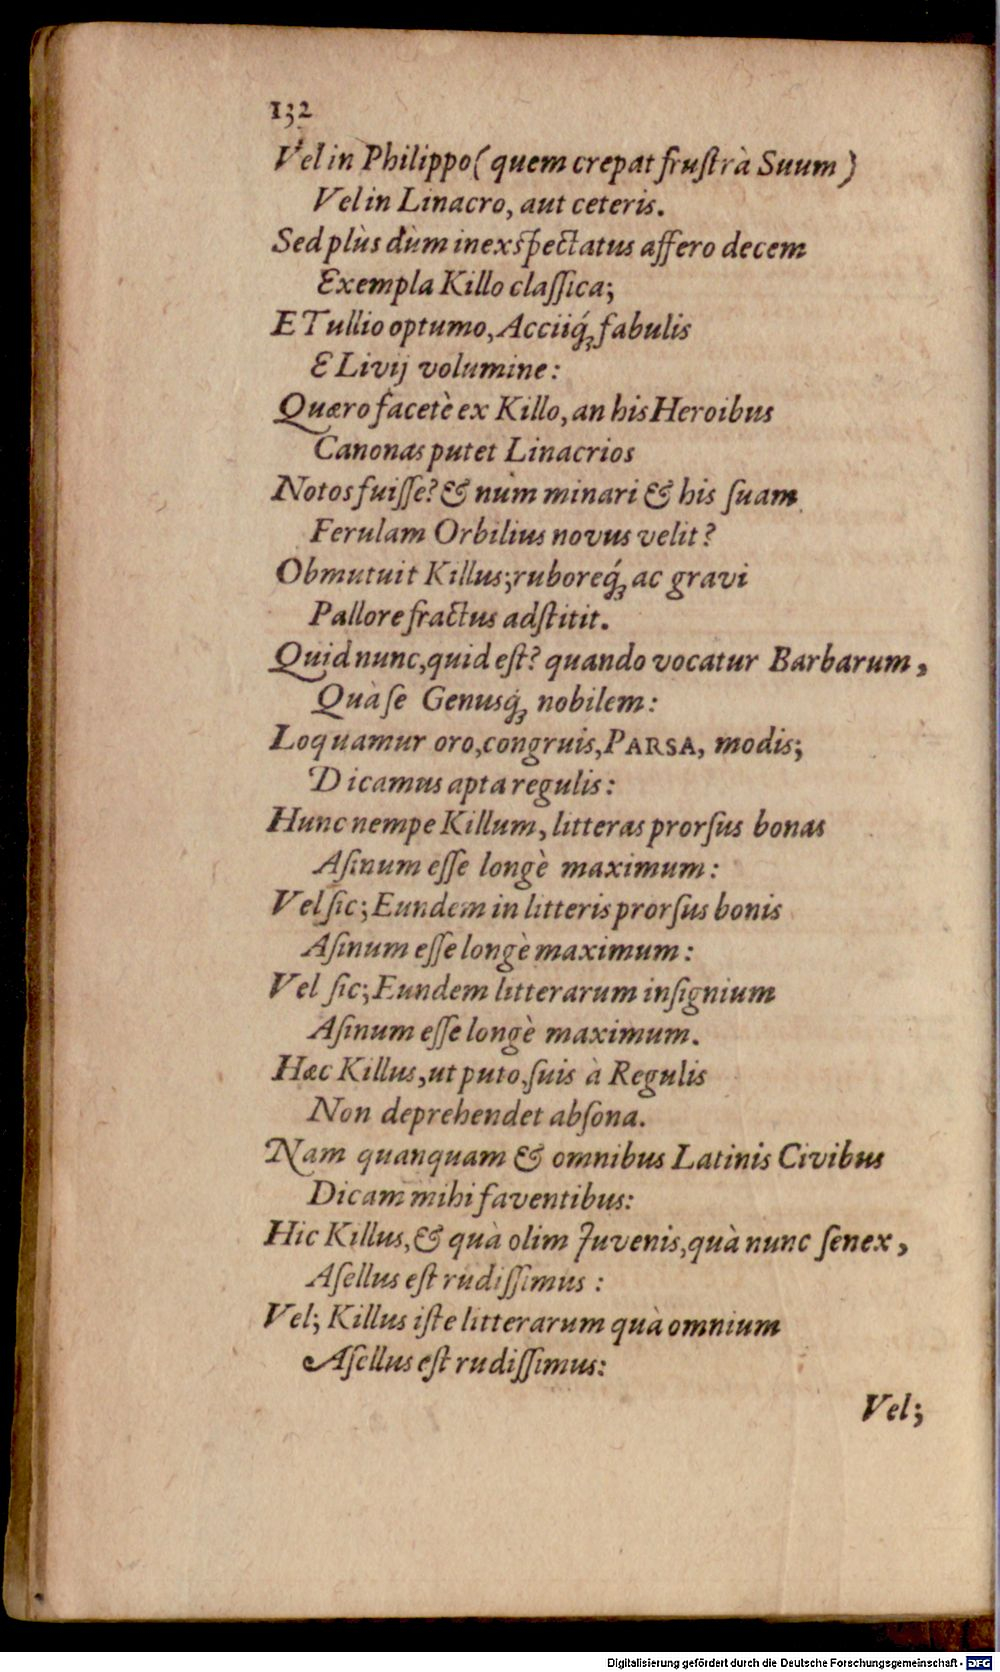 132
Vel in Philippo (quem crepat fruſtrà Suum)
Vel in Linacro, aut ceteris.
Sed plùs dùm inexſpectatus affero decem
Exempla Killo claſſica;
E Tullio optumo, Acciiq́; fabulis
E Livij volumine:
Quæro facetè ex Killo, an his Heroibus
Canonas putet Linacrios
Notos fuiſſe? & nùm minari & his ſuam
Ferulam Orbilius novus velit?
Obmutuit Killus; ruboreq́; ac gravi
Pallore fractus adſtitit.
Quid nunc, quid eſt? quando vocatur Barbarum,
Quà ſe Genusq́; nobilem:
Loquamur oro, congruis, PARSA, modis;
Dicamus apta regulis:
Hunc nempe Killum, litteras prorſus bonas
Aſinum eſſe longè maximum:
Vel ſic; Eundem in litteris prorſus bonis
Aſinum eſſe longè maximum:
Vel ſic; Eundem litterarum inſignium
Aſinum eſſe longè maximum.
Hæc Killus, ut puto, ſuis à Regulis
Non deprehendet abſona.
Nam quanquam & omnibus Latinis Civibus
Dicam mihi faventibus:
Hic Killus, & quà olim Juvenis, quà nunc ſenex,
Aſellus eſt rudiſſimus:
Vel; Killus iſte litterarum quà omnium
Aſellus eſt rudiſſimus:
Vel;
Digitalisierung gefördert durch die Deutsche Forschungsgemeinschaft - DFG